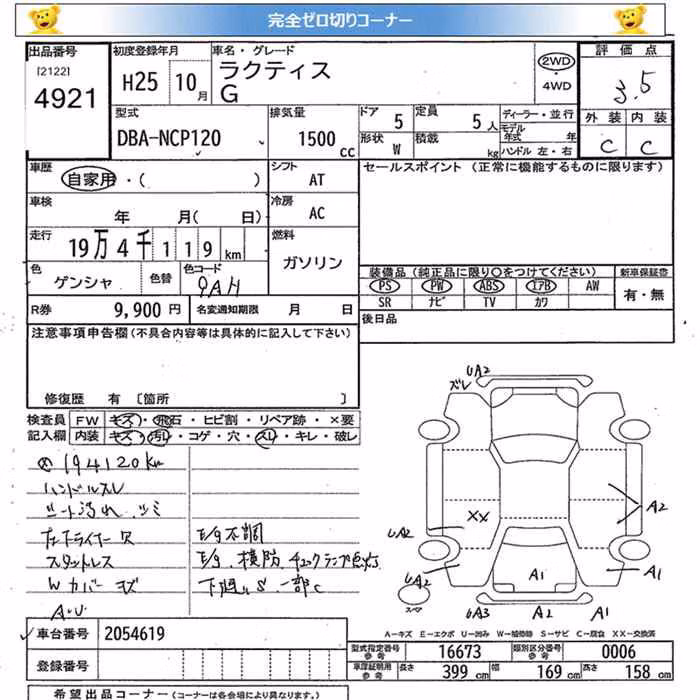 完全ゼロ切りコーナー
出品番号 初度登録年月 車名・グレード 評価点
[2122] 4921 H25 10月 ラクティス G 2WD・4WD 3.5
型式 排気量 ドア 5 定員 5人 ディーラー・並行 外装 内装
DBA-NCP120 1500cc 形状 W 積載 kg モデル年式 年 C C
ハンドル 左・右
車歴 シフト AT セールスポイント (正常に機能するものに限ります)
自家用・( )
車検 冷房 AC
年 月( 日)
走行 燃料
19万4千119km ガソリン
色 ゲンシャ 色替 色コード 9AH 装備品 (純正品に限り○をつけてください) 新車保証書
PS PW ABS エアB AW 有・無
SR ナビ TV カワ
R券 9,900円 名変通知期限 月 日 後日品
注意事項申告欄 (不具合内容等は具体的に記入して下さい)
修復歴 有 [箇所 ]
検査員 FW キズ・飛石・ヒビ割・リペア跡・×要
記入欄 内装 キズ・汚れ・コゲ・穴・スレ・キレ・破レ
194120km
ハンドルスレ
シート汚れ、シミ
E/g不調
スタットレス E/g、横防、チェックランプ点灯
Wカバー キズ 下廻りS、一部C
A・U
UA2
ズレ
XX A2
UA2
UA2 A1 A1
スペア UA3 A2 A1
A-キズ E-エクボ U-凹み W-補修跡 S-サビ C-腐食 XX-交換済
車台番号 2054619 型式指定番号 参考 16673 類別区分番号 参考 0006
登録番号 車庫証明用 参考 長さ 399cm 幅 169cm 高さ 158cm
希望出品コーナー (コーナーは各会場により異なります。)